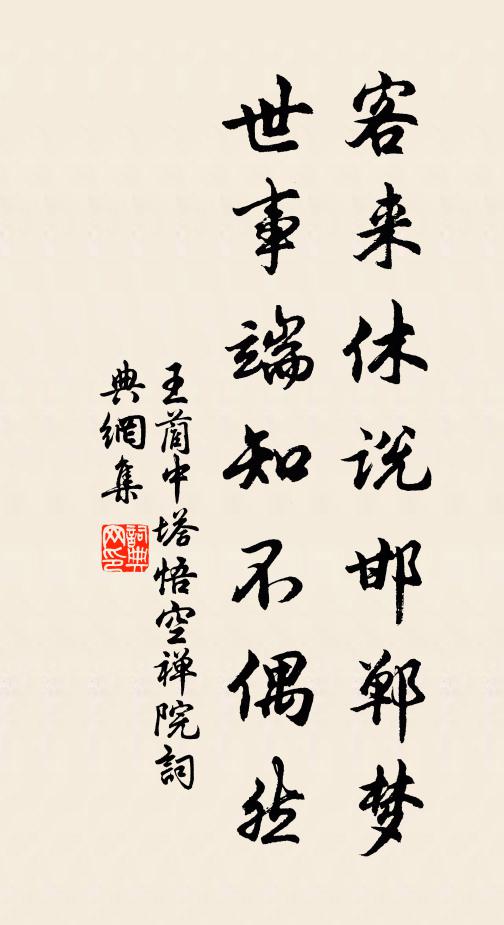 客来休说邯郸梦
世事端知不偶然
王蔄中塔悟空禅院詞
典網集
詞典网印